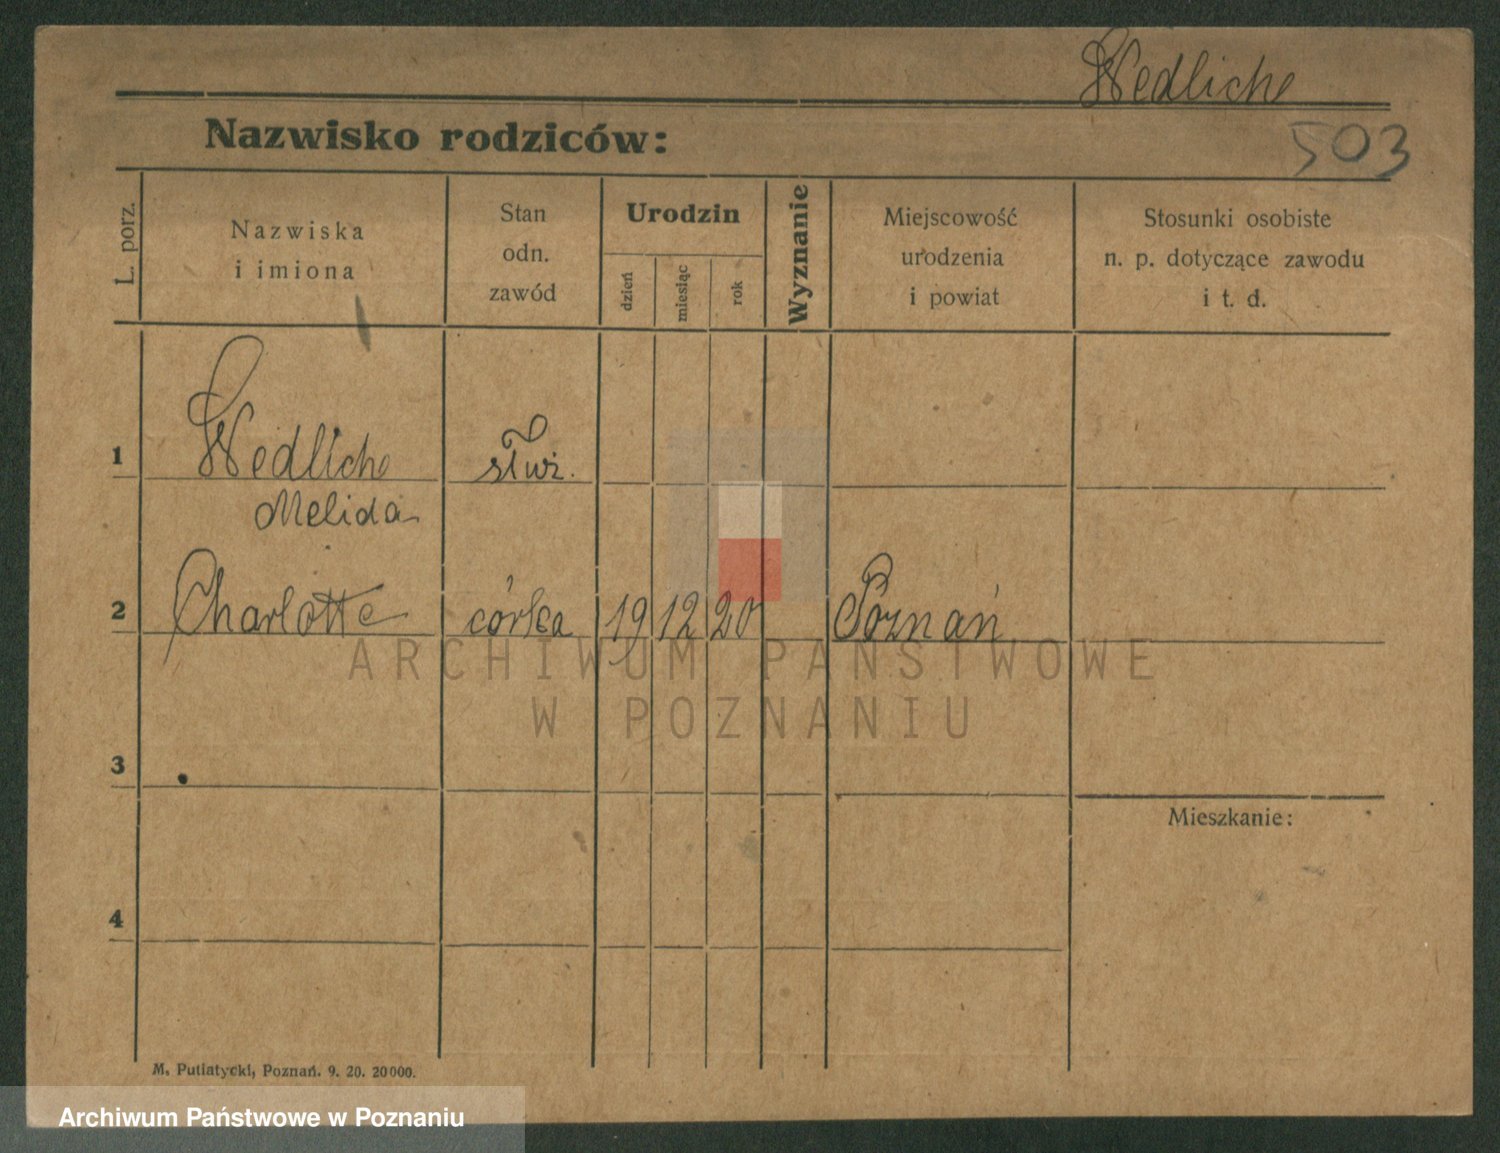 Wedlich
Nazwisko rodziców:
503
L. porz.
Nazwiska
i imiona
Stan
odn.
zawód
Urodzin
dzień
miesiąc
rok
Wyznanie
Miejscowość
urodzenia
i powiat
Stosunki osobiste
n. p. dotyczące zawodu
i t. d.
1 Wedlich służ.
Melida
2 Charlotte córka 19 12 20 Poznań
ARCHIWUM PAŃSTWOWE
W POZNANIU
3
Mieszkanie:
4
M. Putiatycki, Poznań. 9. 20. 20000.
Archiwum Państwowe w Poznaniu